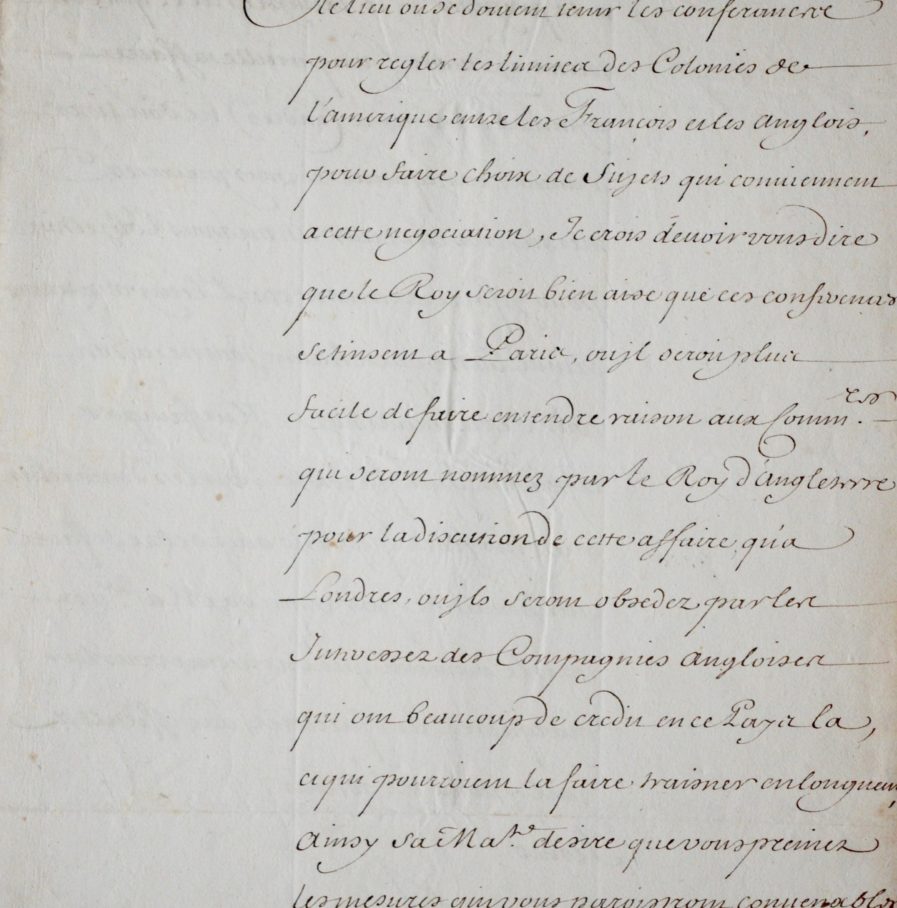 le lieu ou se doivent tenir les conferances
pour regler les limites des Colonies de
l'amerique entre les François et les anglois,
pour faire choix de Sujets qui conviennent
a cette negociation, Je crois devoir vous dire
que le Roy seroit bien aise que ces conferences
se tinsent a Paris, ou jl seroit plus
facile de faire entendre raison aux Comm.res
qui seront nommez par le Roy d'angleterre
pour la discution de cette affaire qu'a
Londres, ou jls seront obsedez par les
Jnteressez des Compagnies angloises
qui ont beaucoup de credit en ce Pays la,
et qui pourroient la faire traisner en longueur,
ainsy sa Ma.té desire que vous preniez
les mesures qui vous paroistront convenables